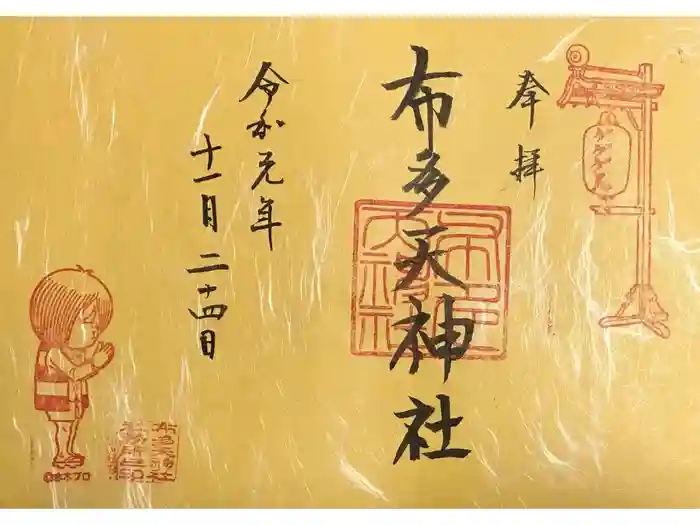 奉拝
布多天神社
令和元年
十一月二十四日
布多天神社
社務所之印
©水木プロ